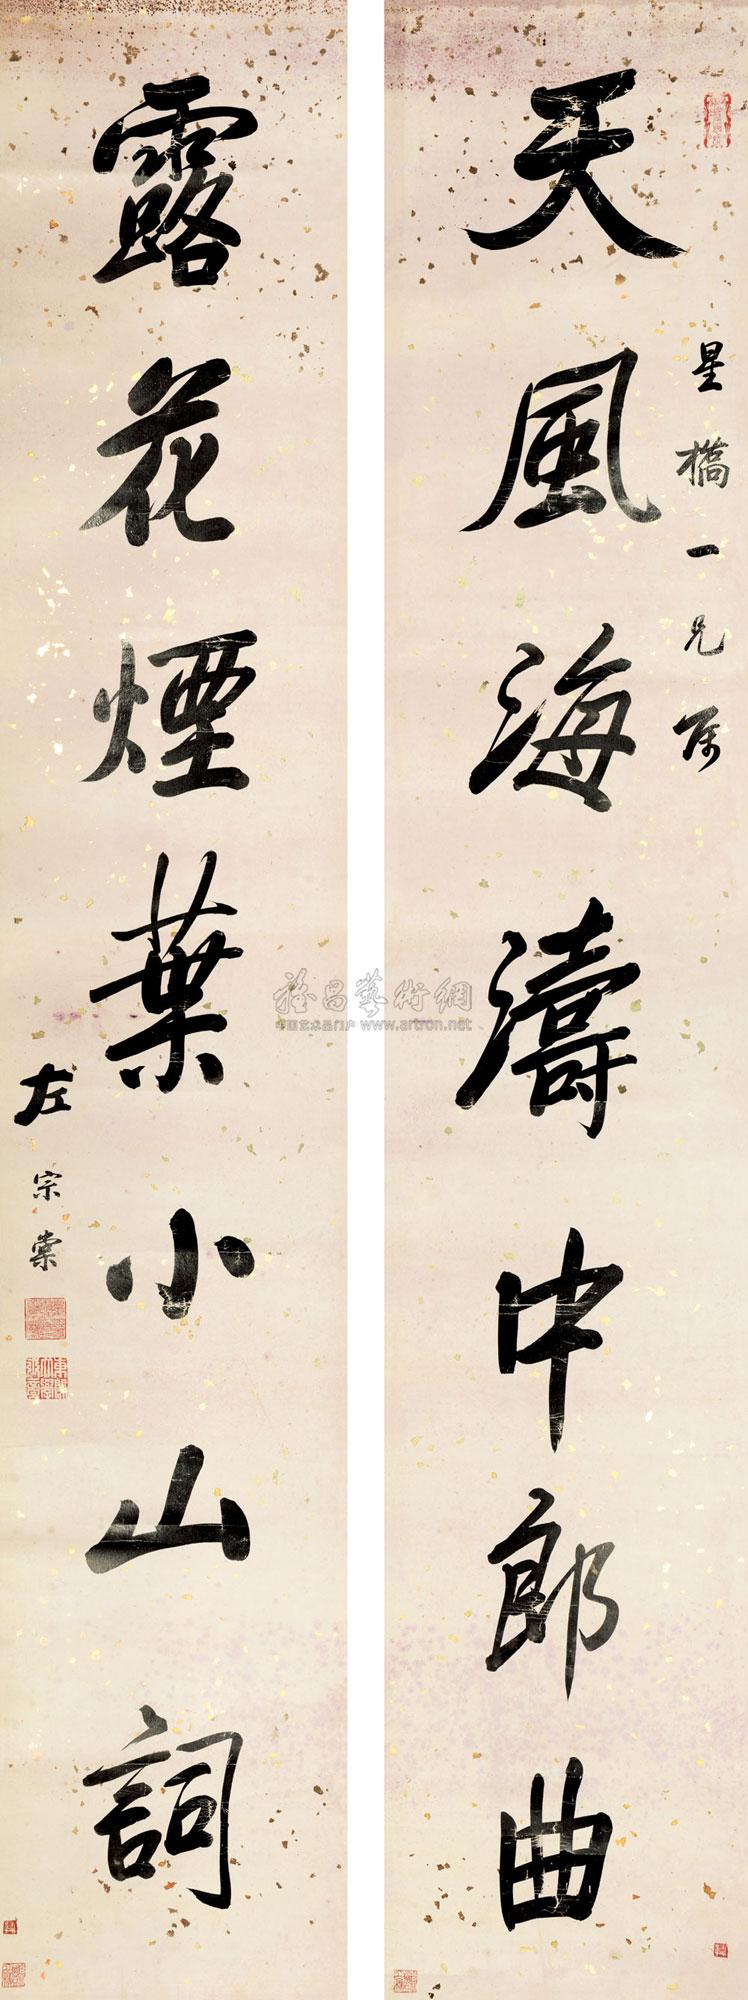 天風海濤中郎曲
星橋一兄屬
露花煙葉小山詞
左宗棠
雅昌藝術網
中国艺术品门户 www.artron.net